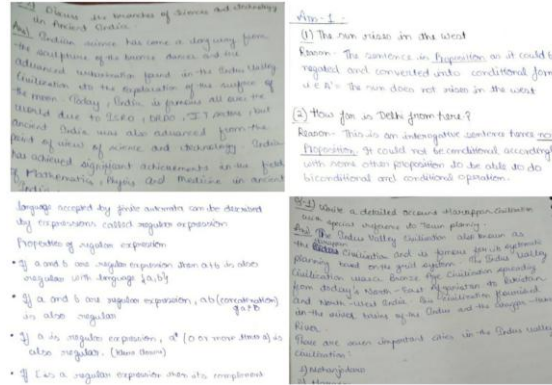 Discuss the branches of Science and technology
in Ancient India.
Ans) Indian science has come a long way from
the sculptures of the bronze dancer and the
advanced urbanisation found in the Indus Valley
Civilisation to the exploration of the surface of
the moon. Today, India is famous all over the
world due to ISRO, DRDO, IT sectors, but
ancient India was also advanced from the
point of view of science and technology. Indian
has achieved significant achievements in the field
of Mathematics, Physics and Medicine in ancient
India.
Ans-1-
(1) The sun rises in the west
Reason- The sentence is Proposition as it could b
negated and converted into conditional form
The sun does not rises in the west
(2) How far is Delhi from here?
Reason- This is an interrogative sentence hence no
Proposition. It could not be conditional according
with some other proposition to be able to do
biconditional and conditional operation.
language accepted by finite automata can be described
by expressions called regular expression
Properties of regular expression
• If a and b are regular expression then a+b is also
regular with language {a,b}
• If a and b are regular expression, ab (concatenation)
is also regular
• If a is regular expression, a* (0 or more times a) is
also regular.
• If L is a regular expression then its complement
Q-1) Write a detailed account Harappan Civilisation
with special reference to Town planning.
Ans) The Indus Valley Civilisation also known as
the Harappan Civilisation and is famous for its systematic
planning based on the grid system. The Indus Valley
Civilisation was a Bronze Age Civilisation spreading
from today's North-East Afganistan to Pakistan
and North-West India. Civilisation flourished
in the river basins of the Indus and the
River.
There are seven important cities in the Indus Valley
Civilisation:
1) Mohanjodaro